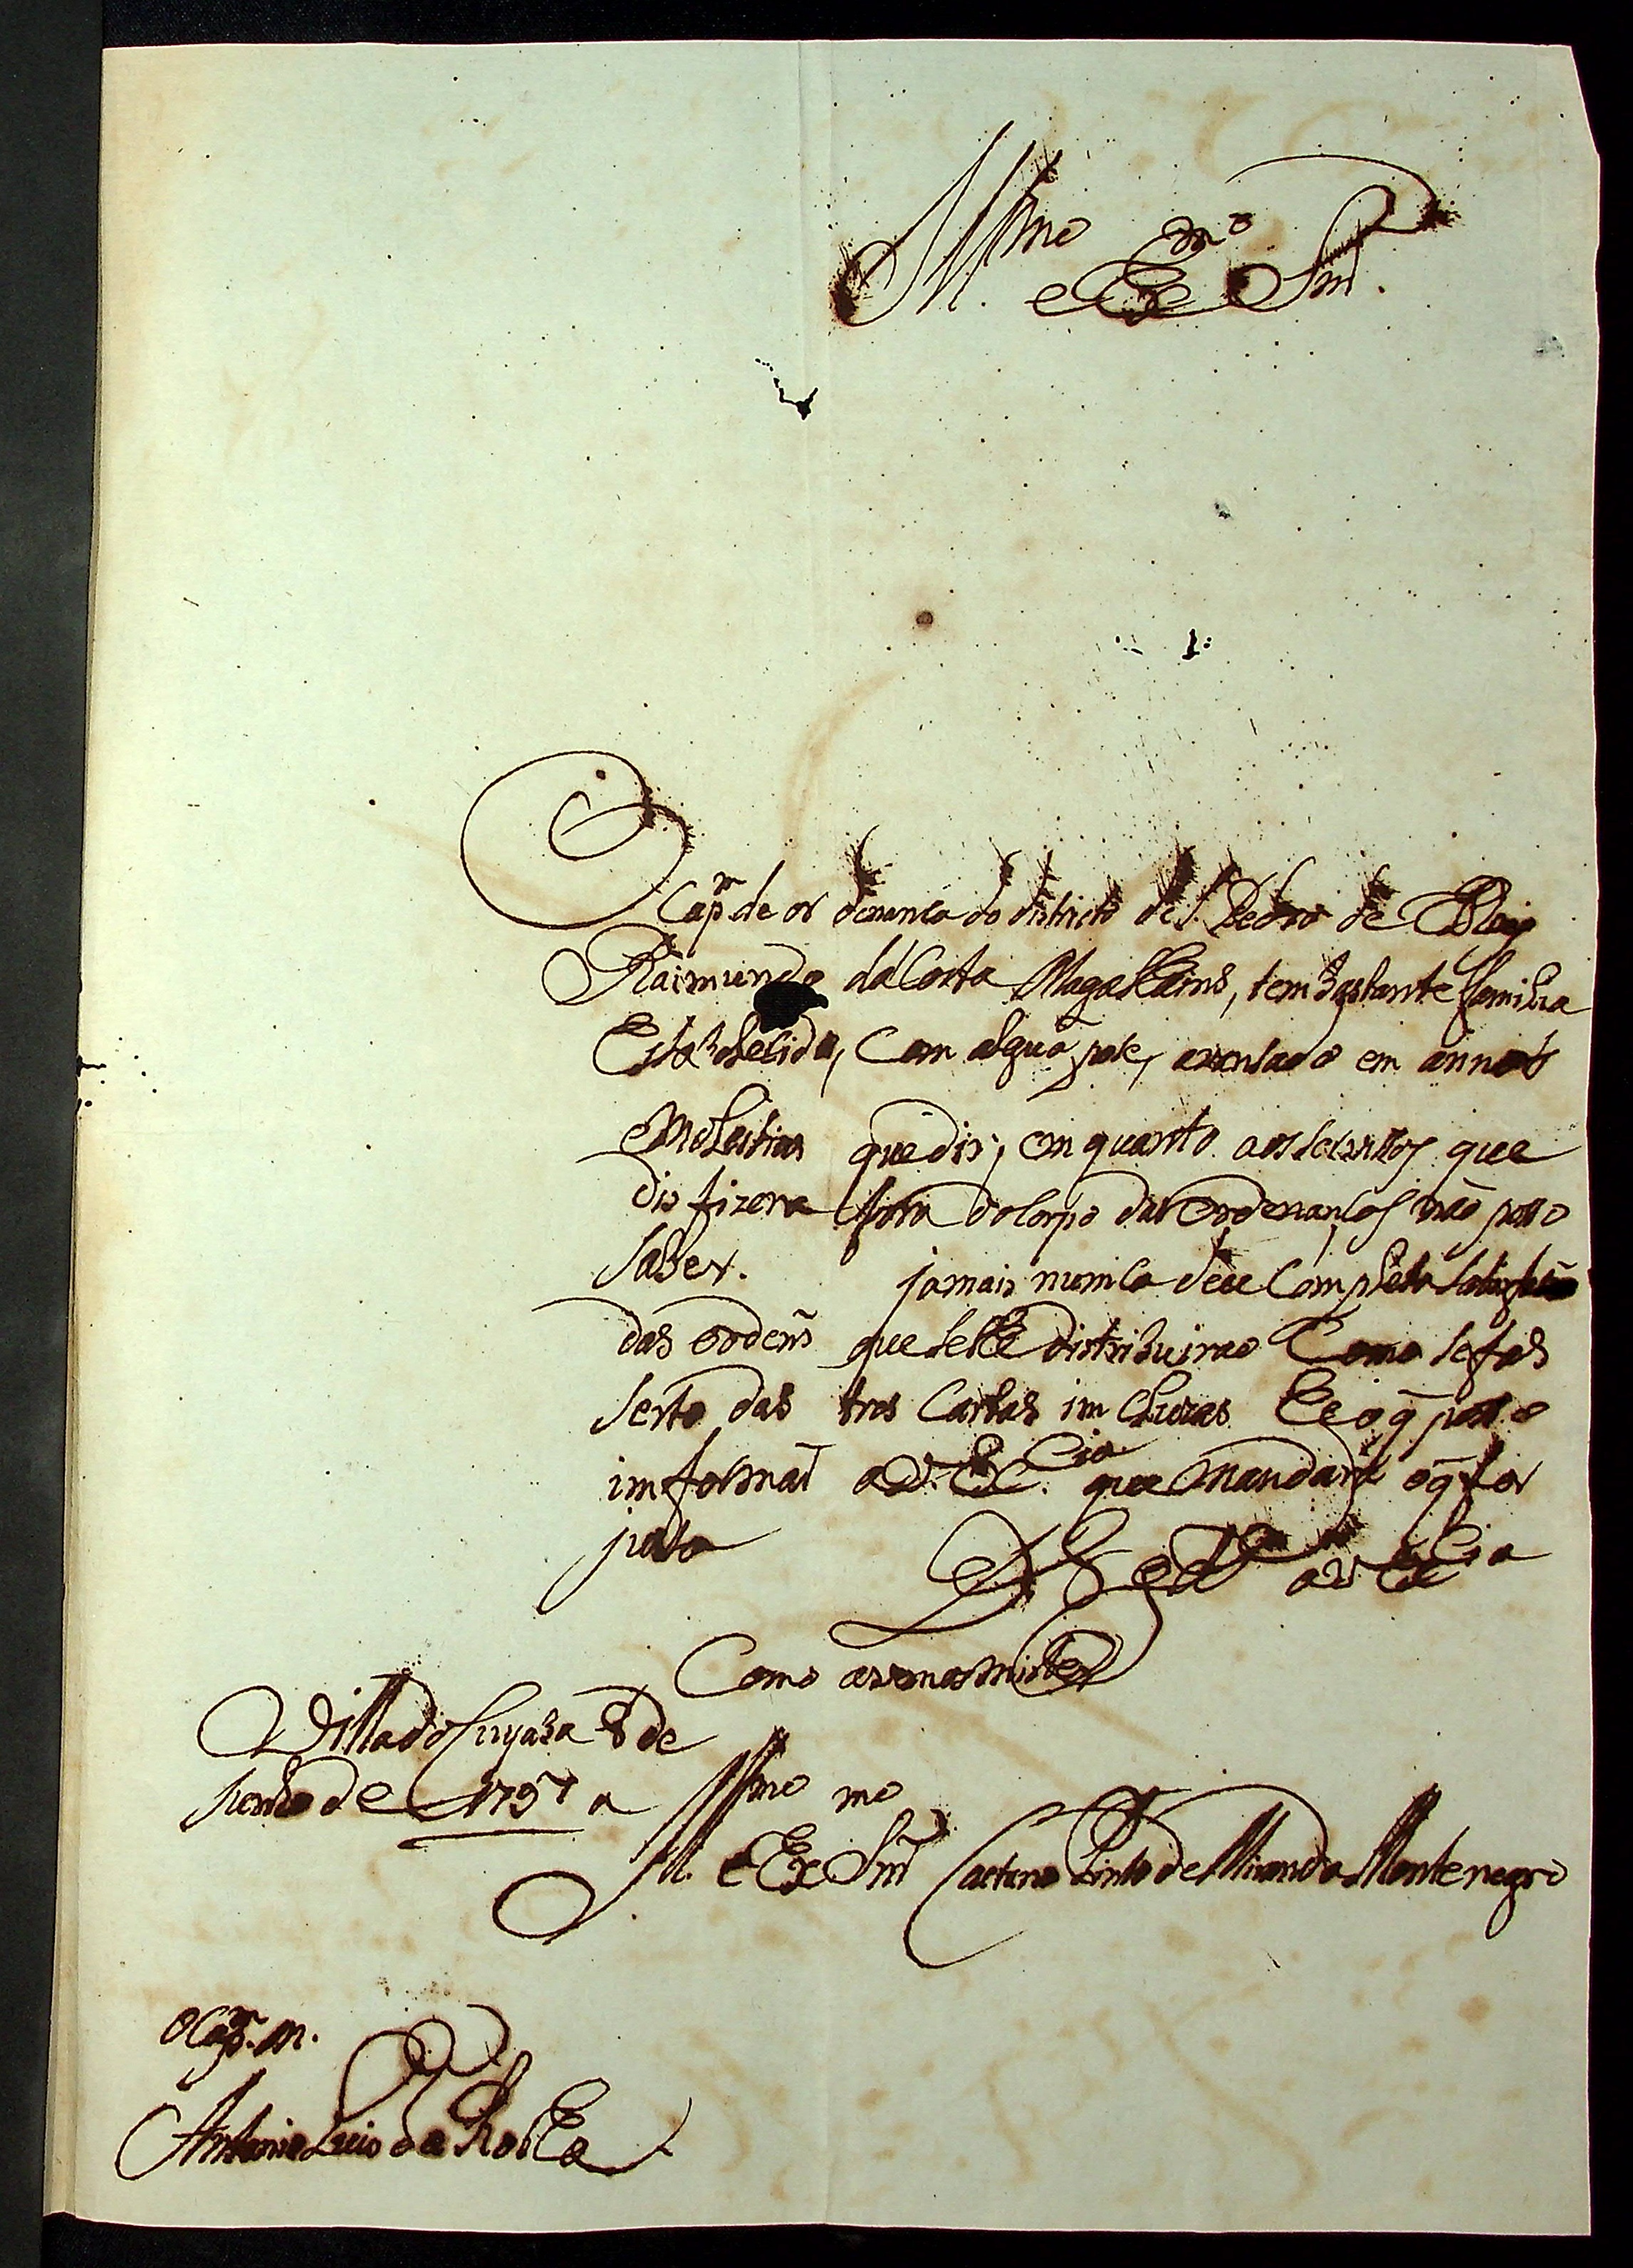 Illmo e Exmo Snr.
O Capm de or denanca do districto de S. Pedro de ElRey
Raimundo da Costa Magalhains, tem bastante familia
Estabelecida, Com algũa pole, avensado em annos
e Molestias que dis; em quanto aos servissos que
dis fizera fora do Corpo das Ordenancas não posso
saber. jamais nunca deu Completa Satisfacão
das ordens que se lhe distribuirao Como se fas
serto das tres Cartas im Cluzas he o q̃ posso
imformar a V. Ex.cia que Mandará o q̃ for
justo
D.s G.e a V. Ex.cia
Como avemos mister
Villa do Cuyaba 8 de
Junho de 1797 a
Illmo e Exmo Snr Caetano Pinto de Miranda Montenegro
O Capm. M.
Antonio Luis da Rocha